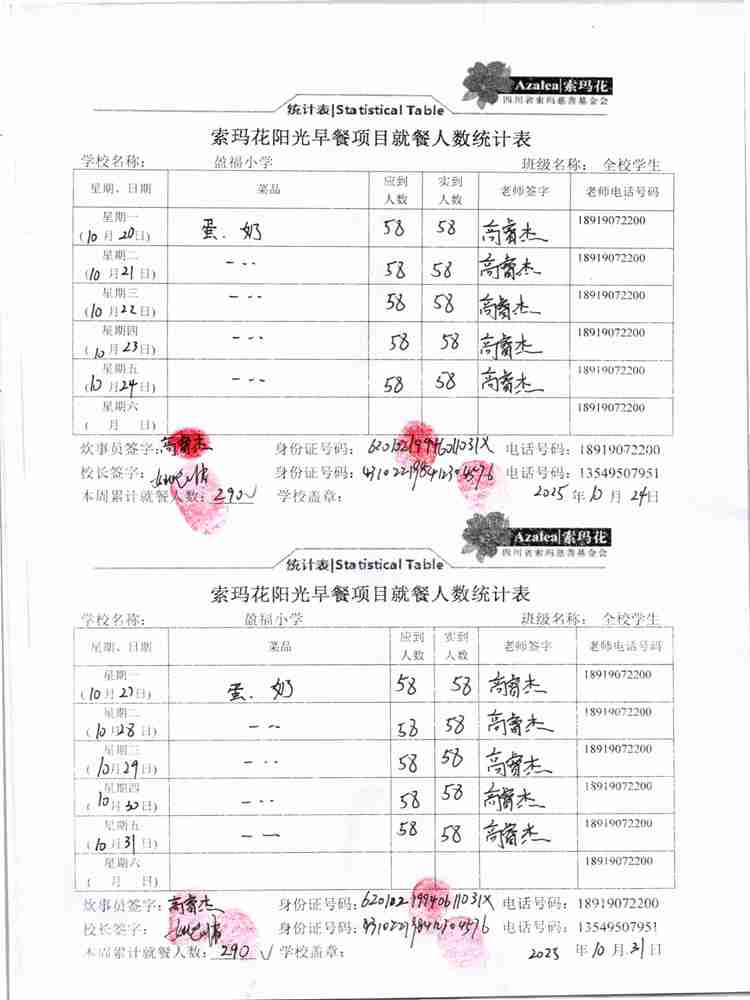 Azalea|索玛花
四川省索玛慈善基金会
统计表|Statistical Table
索玛花阳光早餐项目就餐人数统计表
学校名称： 盈福小学 班级名称： 全校学生
星期、日期 菜品 应到人数 实到人数 老师签字 老师电话号码
星期一 (10月20日) 蛋、奶 58 58 高睿杰 18919072200
星期二 (10月21日) - -- 58 58 高睿杰 18919072200
星期三 (10月22日) - -- 58 58 高睿杰 18919072200
星期四 (10月23日) - -- 58 58 高睿杰 18919072200
星期五 (10月24日) - -- 58 58 高睿杰 18919072200
星期六 ( 月 日) 18919072200
炊事员签字：高睿杰 身份证号码： 电话号码：18919072200
校长签字： 身份证号码： 电话号码：13549507951
本周累计就餐人数：290√ 学校盖章： 2025年10月24日
Azalea|索玛花
四川省索玛慈善基金会
统计表|Statistical Table
索玛花阳光早餐项目就餐人数统计表
学校名称： 盈福小学 班级名称： 全校学生
星期、日期 菜品 应到人数 实到人数 老师签字 老师电话号码
星期一 (10月27日) 蛋、奶 58 58 高睿杰 18919072200
星期二 (10月28日) - -- 58 58 高睿杰 18919072200
星期三 (10月29日) - -- 58 58 高睿杰 18919072200
星期四 (10月30日) - -- 58 58 高睿杰 18919072200
星期五 (10月31日) - -- 58 58 高睿杰 18919072200
星期六 ( 月 日) 18919072200
炊事员签字：高睿杰 身份证号码： 电话号码：18919072200
校长签字： 身份证号码： 电话号码：13549507951
本周累计就餐人数：290√ 学校盖章： 2025年10月31日